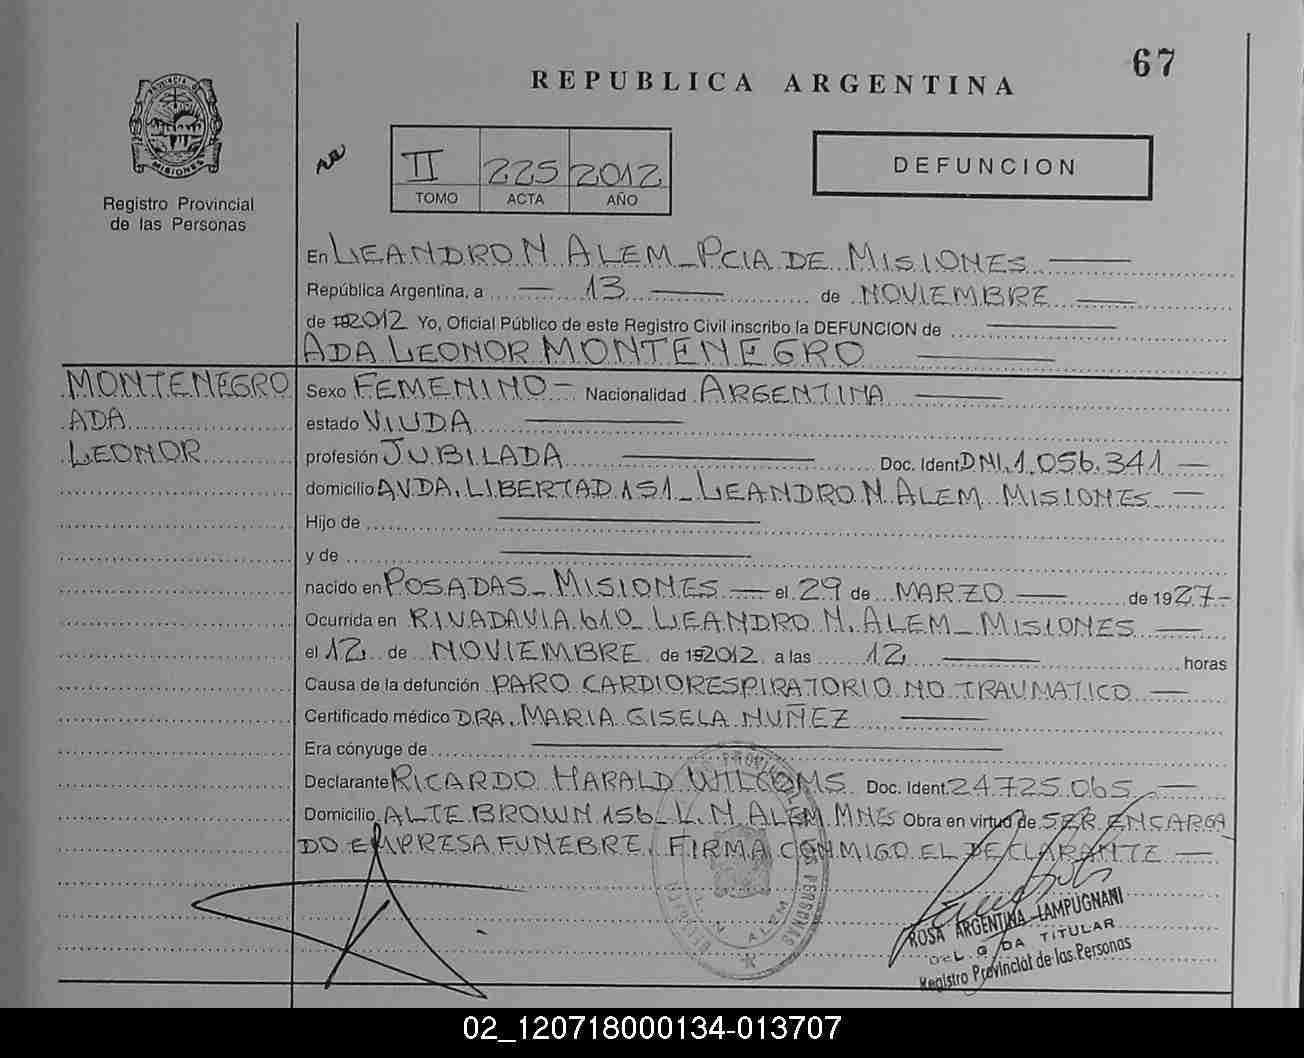 67
REPUBLICA ARGENTINA
MISIONES
Registro Provincial
de las Personas
II 225 2012
TOMO ACTA AÑO
DEFUNCION
En LEANDRO N ALEM - PCIA DE MISIONES
República Argentina, a 13 de NOVIEMBRE
de 2012 Yo, Oficial Público de este Registro Civil inscribo la DEFUNCION de
ADA LEONOR MONTENEGRO
MONTENEGRO
ADA
LEONOR
Sexo FEMENINO - Nacionalidad ARGENTINA
estado VIUDA
profesión JUBILADA Doc. Ident. DNI. 1.056.341
domicilio AVDA. LIBERTAD 151 - LEANDRO N. ALEM MISIONES
Hijo de
y de
nacido en POSADAS - MISIONES el 29 de MARZO de 1927
Ocurrida en RIVADAVIA 610 - LEANDRO N. ALEM - MISIONES
el 12 de NOVIEMBRE de 2012 a las 12 horas
Causa de la defunción PARO CARDIORESPIRATORIO NO TRAUMATICO
Certificado médico DRA. MARIA GISELA NUÑEZ
Era cónyuge de
Declarante RICARDO HARALD WILCOMS Doc. Ident. 24.725.065
Domicilio ALTE BROWN 156 - L. N ALEM MNES Obra en virtud de SER ENCARGA
DO EMPRESA FUNEBRE. FIRMA CONMIGO EL DECLARANTE
L. N. ALEM
ROSA ARGENTINA LAMPUGNANI
DELG DA TITULAR
Registro Provincial de las Personas
02_120718000134-013707